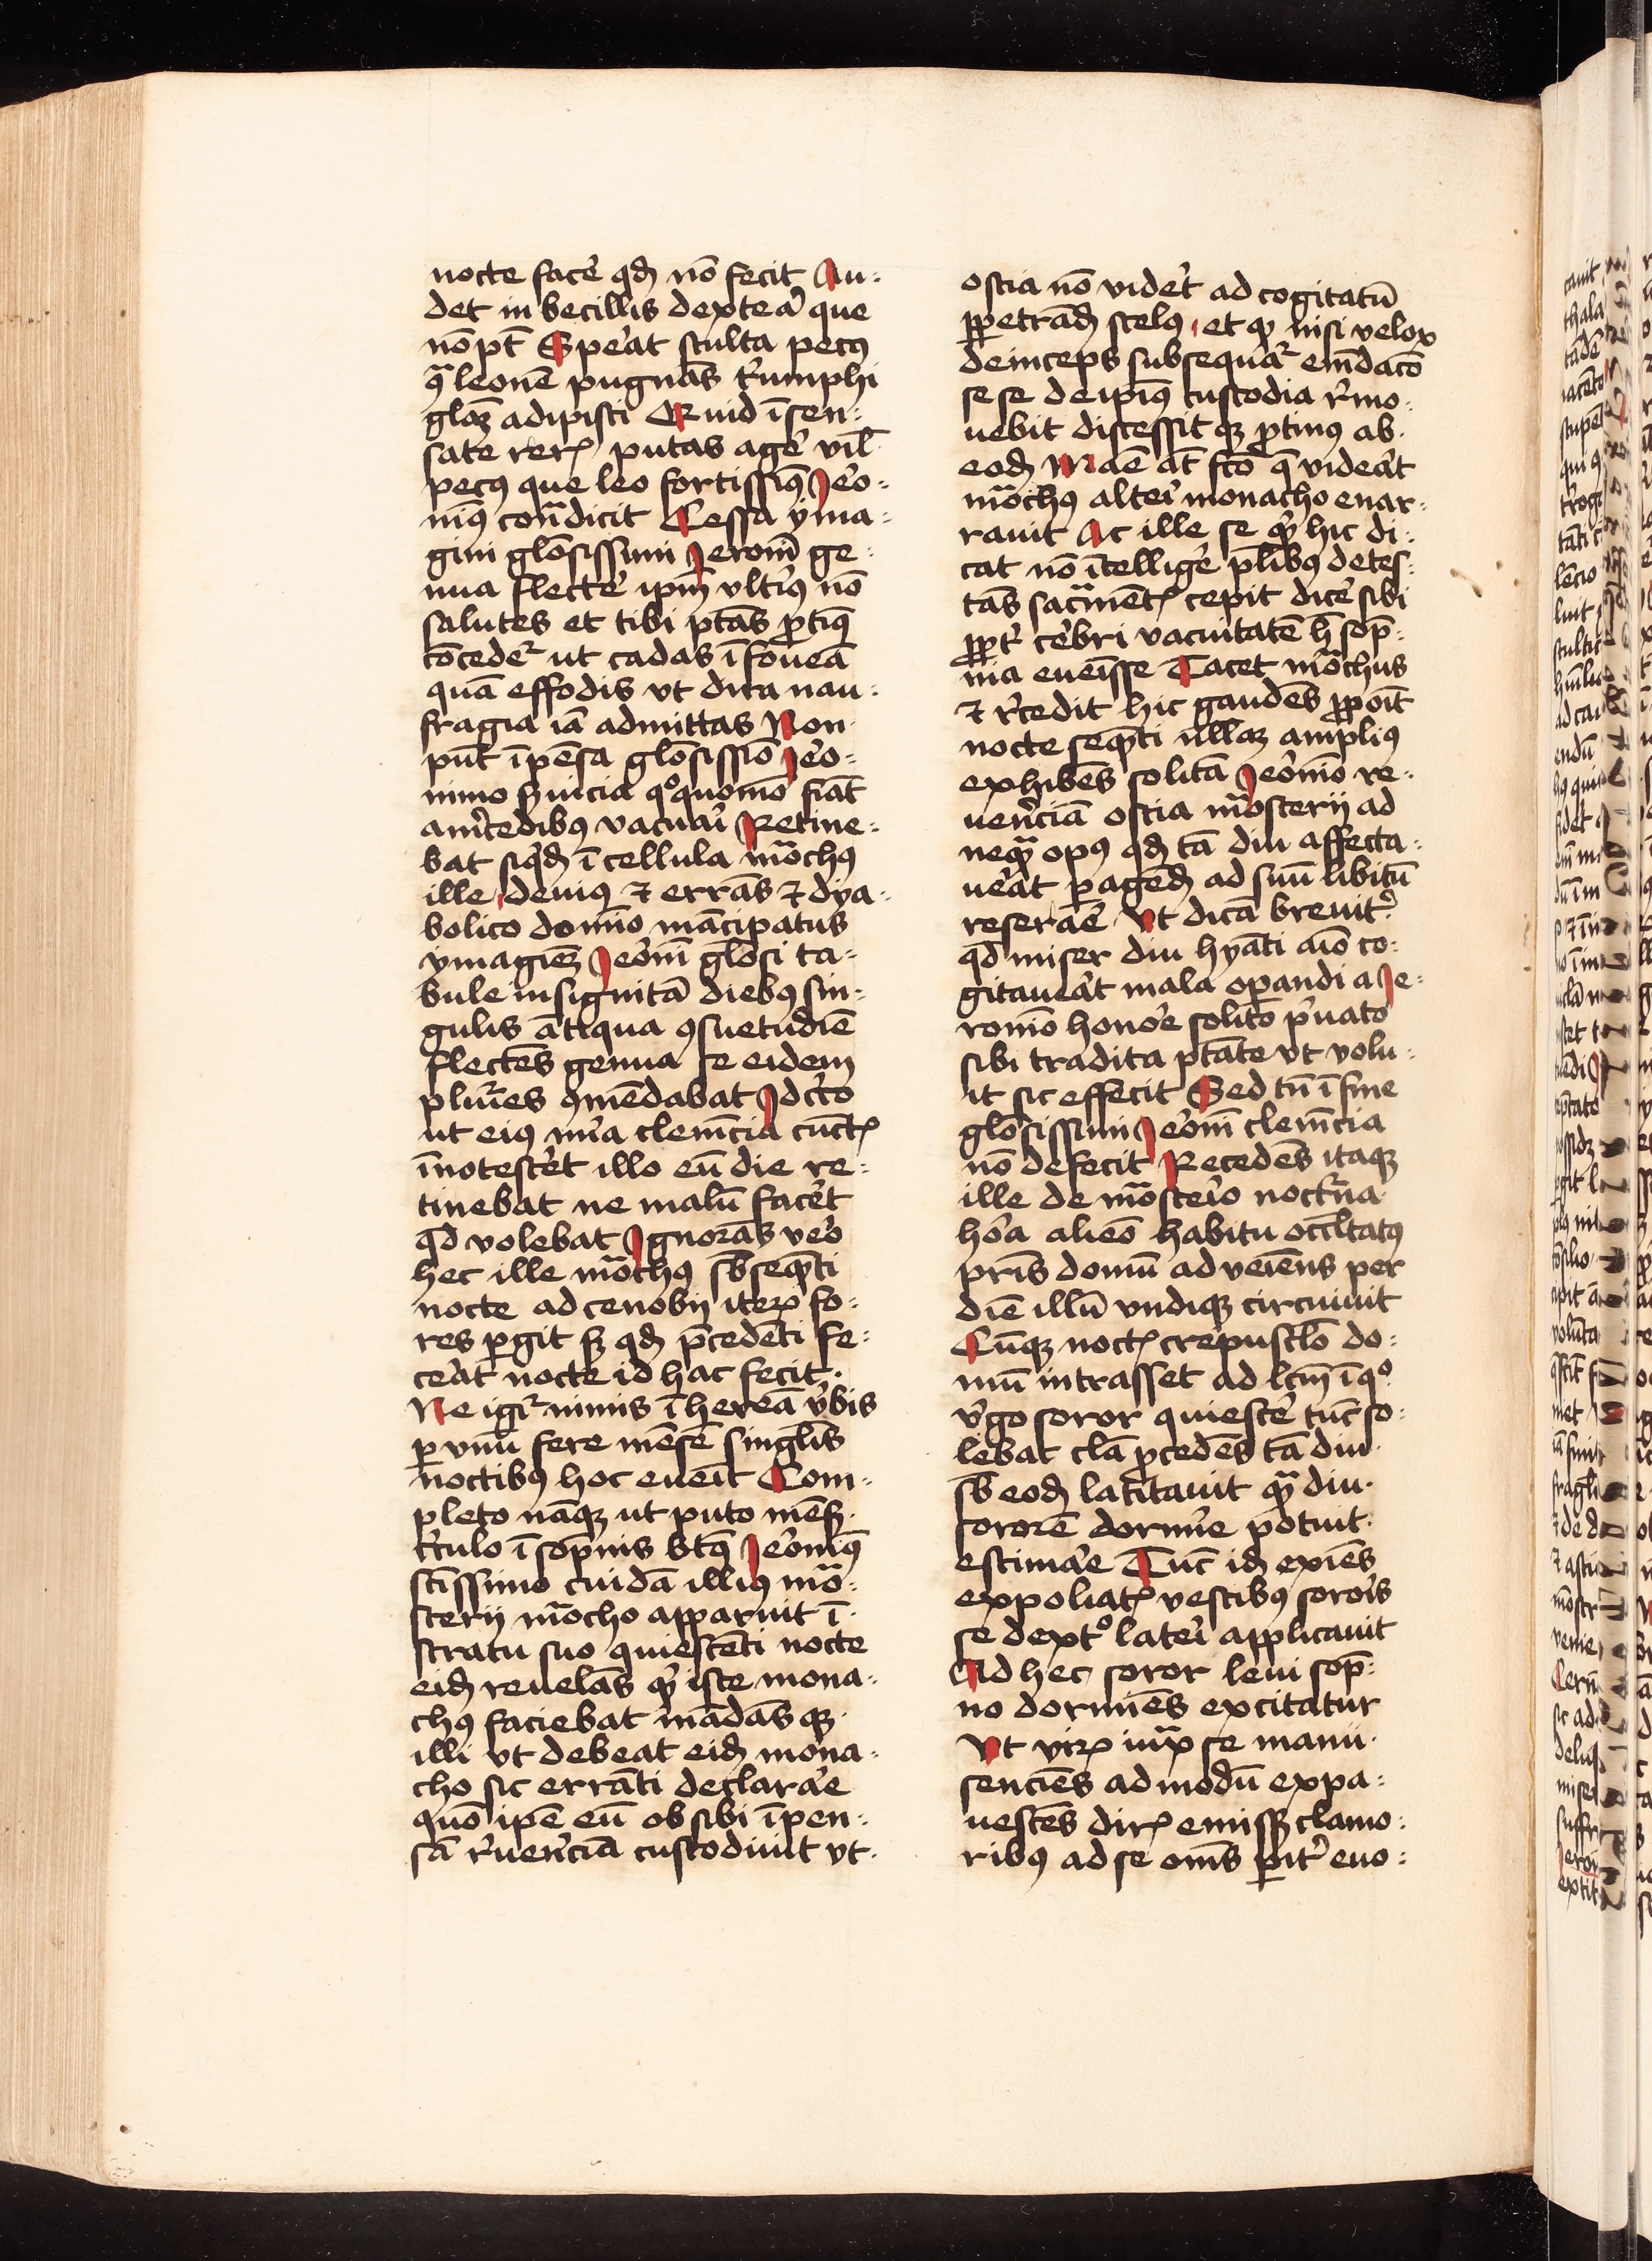 nocte face᷑ qđ nō fecit Au-
det in becillis dextea᷑ que
nō pt̄ Spe᷑at stulta pecꝯ
qᷓ leonē pugnās t᷑umphi
gloꝫ adipisci Quid īsen-
sate rerꝝ putas age᷑ vil̄
pecꝯ que leo fortissimꝯ Ieo᷑-
nimꝯ cont᷑dicit Cessa yma-
gini glōsissimi Ieronī ge-
nua flecte᷑ ip̄m vlti᷑ꝯ nō
salutes et tibi ptās ꝓtinꝯ
cōcede᷑ ut cadas ī foueā
quā effodis vt dira nau-
fragia iā admittas Non
pn̄t īpēsa glōsissīo Ieo᷑-
nimo suicia qͦquomō fiāt
a m᷑cedibꝯ vacua᷑i Retine-
bat siqđ ī cellula mōchꝯ
ille deuiꝯ ⁊ errās ⁊ dya-
bolico domīo mācipatus
ymagīeꝫ Ieo᷑nī glōsi ta-
bule insignitā diebꝯ sin-
gulis ātiqua ꝯsuetudīe
flectēs genua se eidem
pl᷑ies ꝯmēdabat Idc᷑co
ut eiꝯ mīa clem̄cia cūctꝭ
īnotesce᷑t illo eū die re-
tinebat ne malū face᷑t
qđ volebat Ignorās ve᷑o
hec ille mōchꝯ sb̄seqn̄ti
nocte ad cenobij iteꝝ fo-
res ꝑgit sꝫ qđ p̄cedēti fe-
cea᷑t nocte id hac fecit.
Ne igi᷑ nimis īhereā v᷑bis
ꝑ vnū fere mēsē singl̄is
noctibꝯ hoc eueīt Com-
pleto nāqꝫ ut puto mēsꝭ
c᷑culo ī sop̄nis btꝯ Ieo᷑nimꝯ
stīssimo cuidā illiꝯ mō-
sterij mōcho apparuit ī
stratu suo quiescēti nocte
eiđ reuelās qꝙ iste mona-
chꝯ faciebat mādās qꝫ
illi vt debeat eiđ mona-
cho sic errāti declara᷑e
quō ip̄e eū ob sibi īpen-
sā r᷑ueren᷑ciā custodiuit vt
ostia nō vide᷑t ad cogitatū
ꝑpetrāđ scelꝯ et qꝙ nisi velox
deinceps subsequa᷑ em̄daco᷑
sese de ipīꝯ custodia r᷑mo-
uebit discessit qꝫ ꝓtinꝯ ab
eođ Māe āt fco᷑ q̄ videa᷑t
mōchꝯ alte᷑i monacho enar-
rauit Ac ille se qꝙ hic di-
cat nō ītellige᷑ pl̄ibꝯ detes-
tās sacᷓmētꝭ cepit dice᷑ sibi
ꝓpt᷑ ce᷑bri vacuitatē h̄ sop̄-
nia eueīsse Tacet mōchus
⁊ r᷑cedit hic gaudēs ꝓpoīt
nocte seqn̄ti nullaꝫ ampliꝯ
exhibēs solitā Ieo᷑nīo re-
ue᷑nciā ostia mōsterij ad
neqᷓ opꝯ qđ tā diu affecta-
uea᷑t ꝑagēđ ad suū libitū
resera᷑e Vt dicā breuit᷑
qđ miser diu hyāti aīo co-
gitauea᷑t mala opandi a Ie-
ronīo hono᷑e solito p᷑uato
sibi tradita ptāte vt volu-
it sic effecit Sed tn̄ ī fine
glōsissimi Ieo᷑nī clem̄cia
nō defecit Recedēs itaqꝫ
ille de mōste᷑io noct᷑na
ho᷑a alieō habitu occl̄tatꝯ
pr̄is domū adveīens per
diē illū vndiqꝫ circuiuit
Cūqꝫ noctꝭ crepuscl̄o do-
mū intrasset ad lcm̄ ī qͦ
v᷑go soror quiesce᷑ tūc so-
lebat clā ꝓcedēs tā diu
sb̄ eođ latitauit qᷓ diu
sororē dormi᷑e potuit
estima᷑e Tūc iđ exiēs
expoliatꝭ vestibꝯ soro᷑is
se dextͦ late᷑i applicauit
Ad hec soror leui sop̄-
no dormiēs excitatur
Vt virꝝ iuxᷓ se manu
senciēs admodū expa-
uescēs dirꝭ emissꝭ clamo-
ribꝯ ad se om̄s ꝑit᷑ euo-